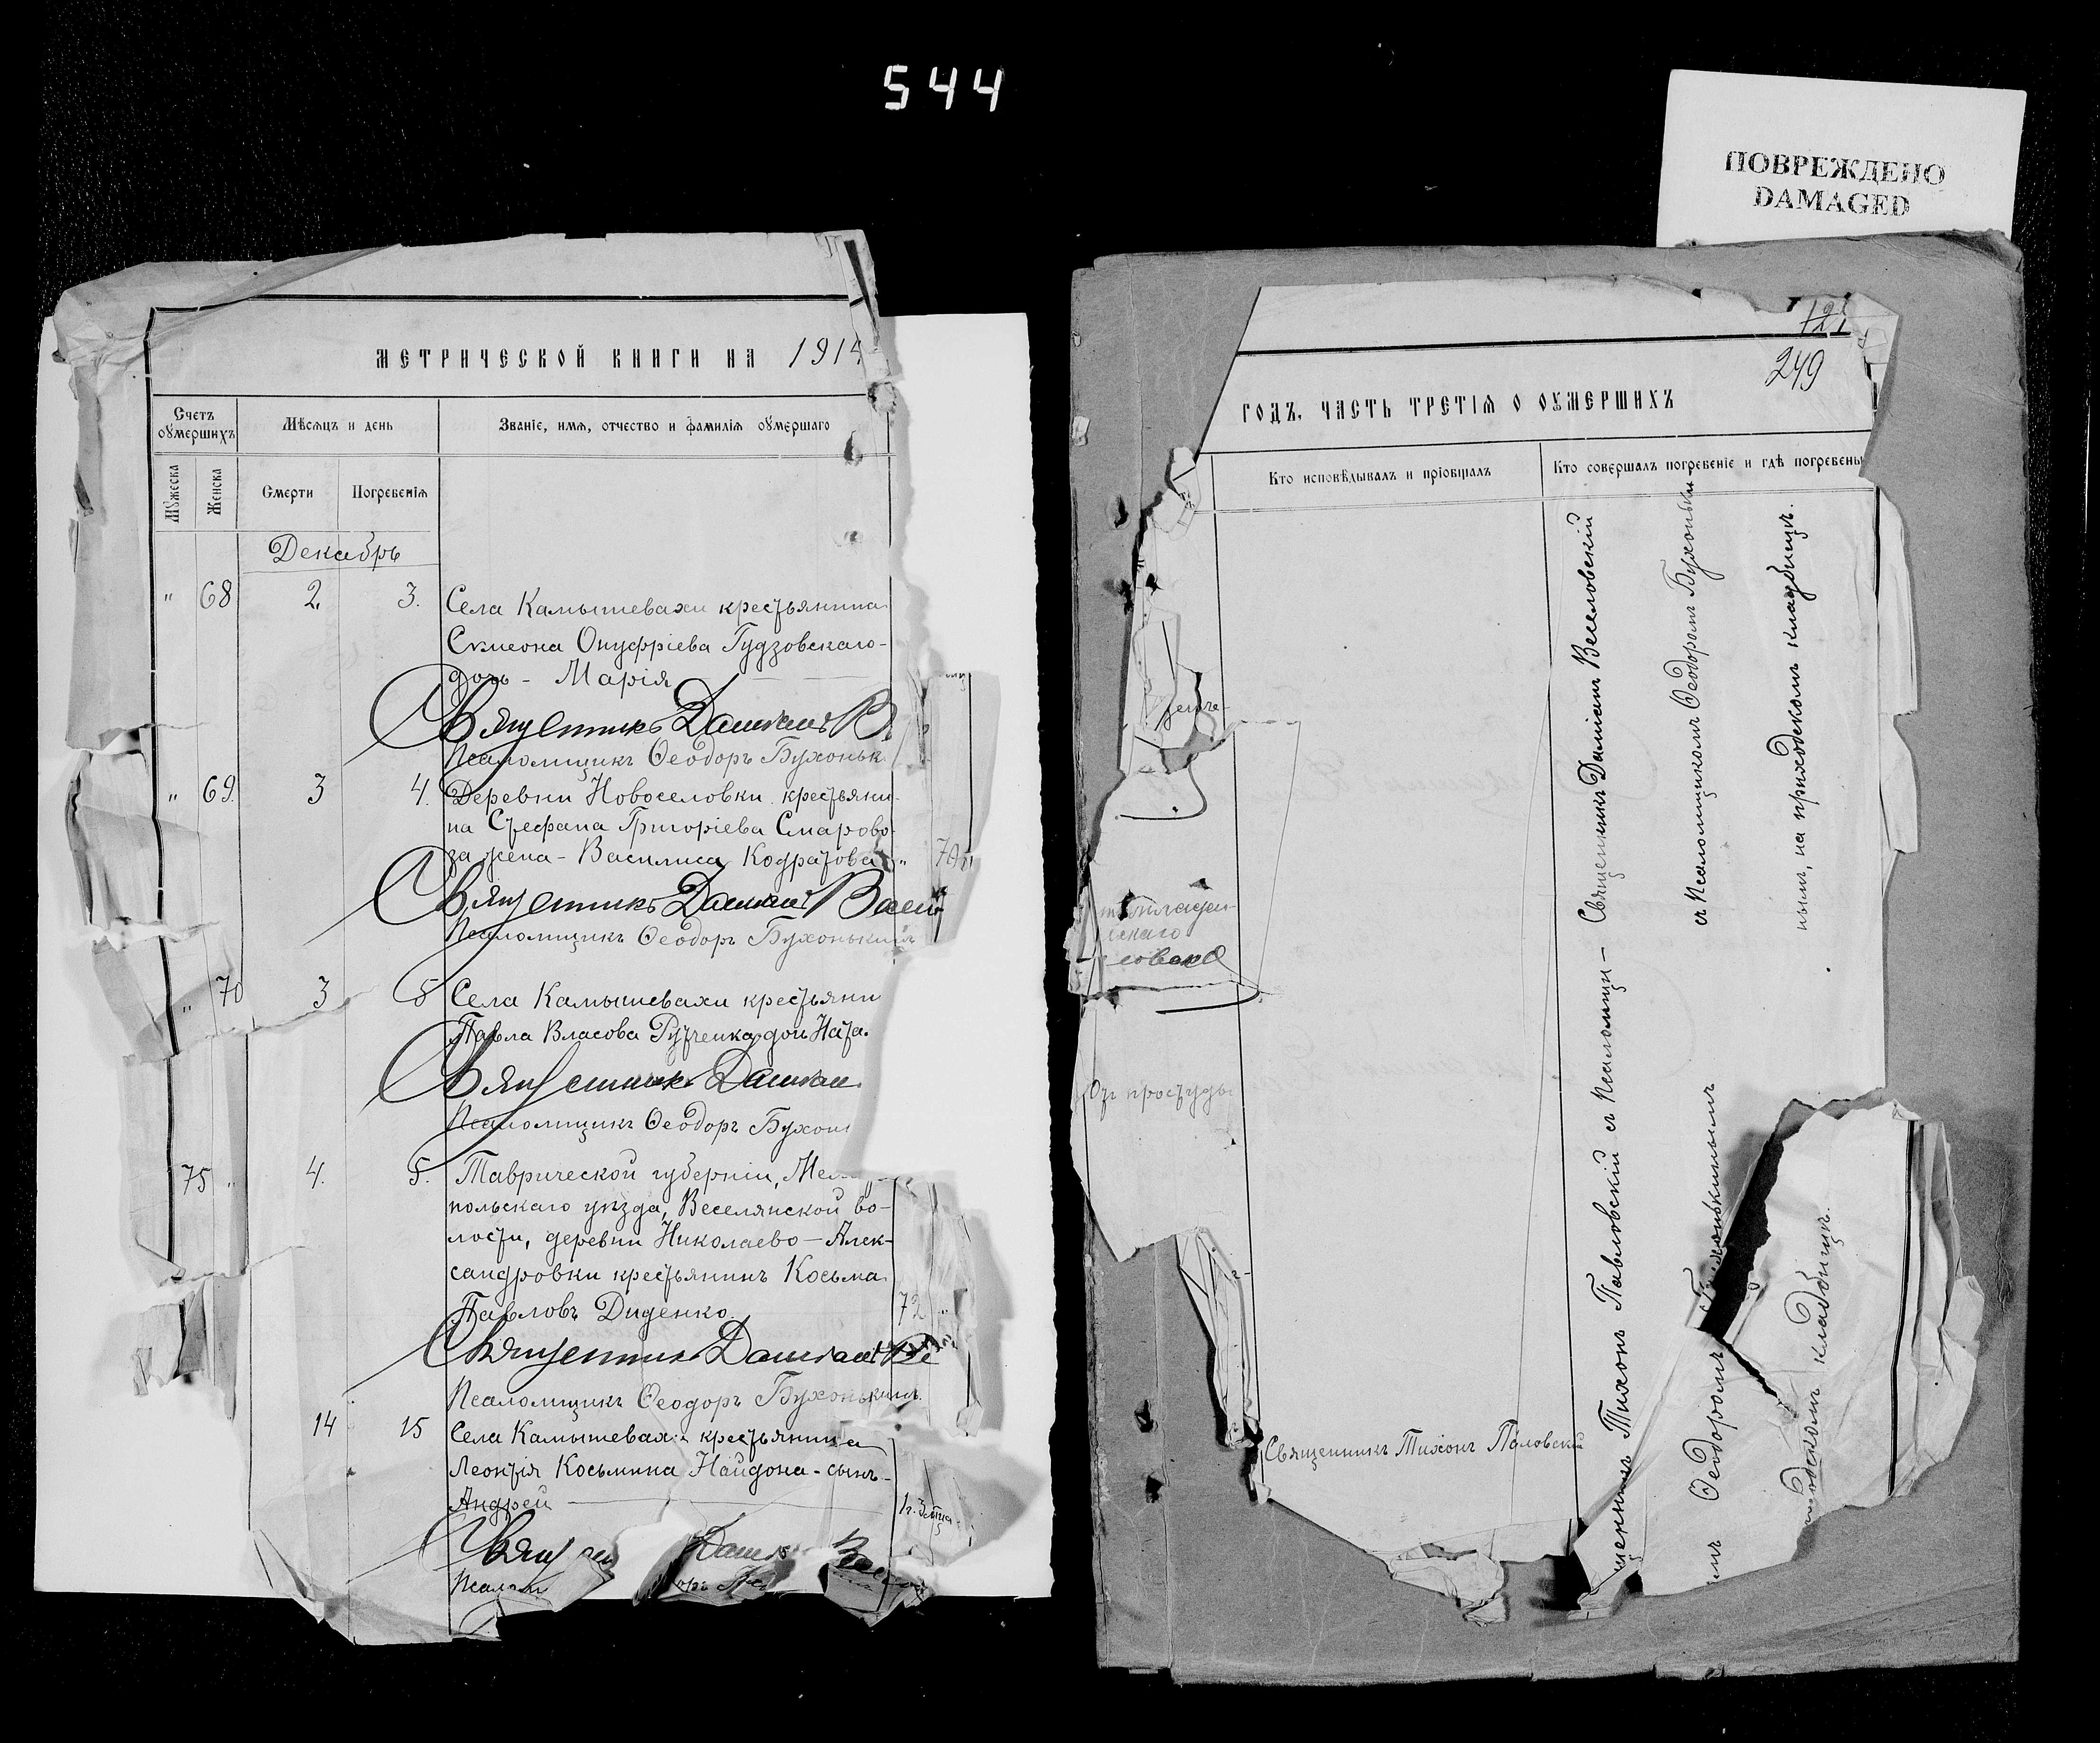 544
ПОВРЕЖДЕНО
DAMAGED
МЕТРИЧЕСКОЙ КНИГИ НА 1914
Счетъ оумершихъ
Мѣсяцъ и день
Званіе, имя, отчество и фамилія оумершаго
Мужеска
Женска
Смерти
Погребенія
Декабрь
" 68 2. 3. Села Камышевахи крестьянина
Симеона Онуфріева Гудзовскаго-
дочь - Марія
Священникъ Даміанъ В
Псаломщикъ Ѳеодоръ Бухоньк
" 69. 3 4. Деревни Новоселовки крестьяни-
на Стефана Григоріева Смарово-
за жена - Василиса Кодратова " 70
Священникъ Даміанъ Весе
Псаломщикъ Ѳеодоръ Бухонькинъ
" 70 3 5 Села Камышевахи крестьяни
Павла Власова Рутченка дочь Ната.
Священникъ Даміан
Псаломщикъ Ѳеодоръ Бухонь
75 " 4. 5. Таврической губерніи, Мел
польскаго уѣзда, Веселянской во-
лости, деревни Николаево - Алек-
сандровки крестьянинъ Косьма
Павловъ Диденко. 72 "
Священникъ Даміанъ Ве
Псаломщикъ Ѳеодоръ Бухонькинъ.
14 15 Села Камышевахи крестьянина
Леонтія Косьмина Найдона - сынъ -
Андрей
Свящ Даміа Весело
Псалом
121
249
ГОДЪ, ЧАСТЬ ТРЕТІЯ О ОУМЕРШИХЪ
Кто исповѣдывалъ и пріобщалъ
Кто совершалъ погребеніе и гдѣ погребены
скаго
Отъ простуды
Священникъ Тихонъ Павловскій
Священникъ Даміанъ Веселовскій
съ Псаломщикомъ Ѳеодоромъ Бухоньки
нымъ, на приходскомъ кладбищѣ.
щенникъ Тихонъ Павловскій съ Псаломщи-
омъ Ѳеодоромъ Бухонькинымъ
иходскомъ кладбищѣ.